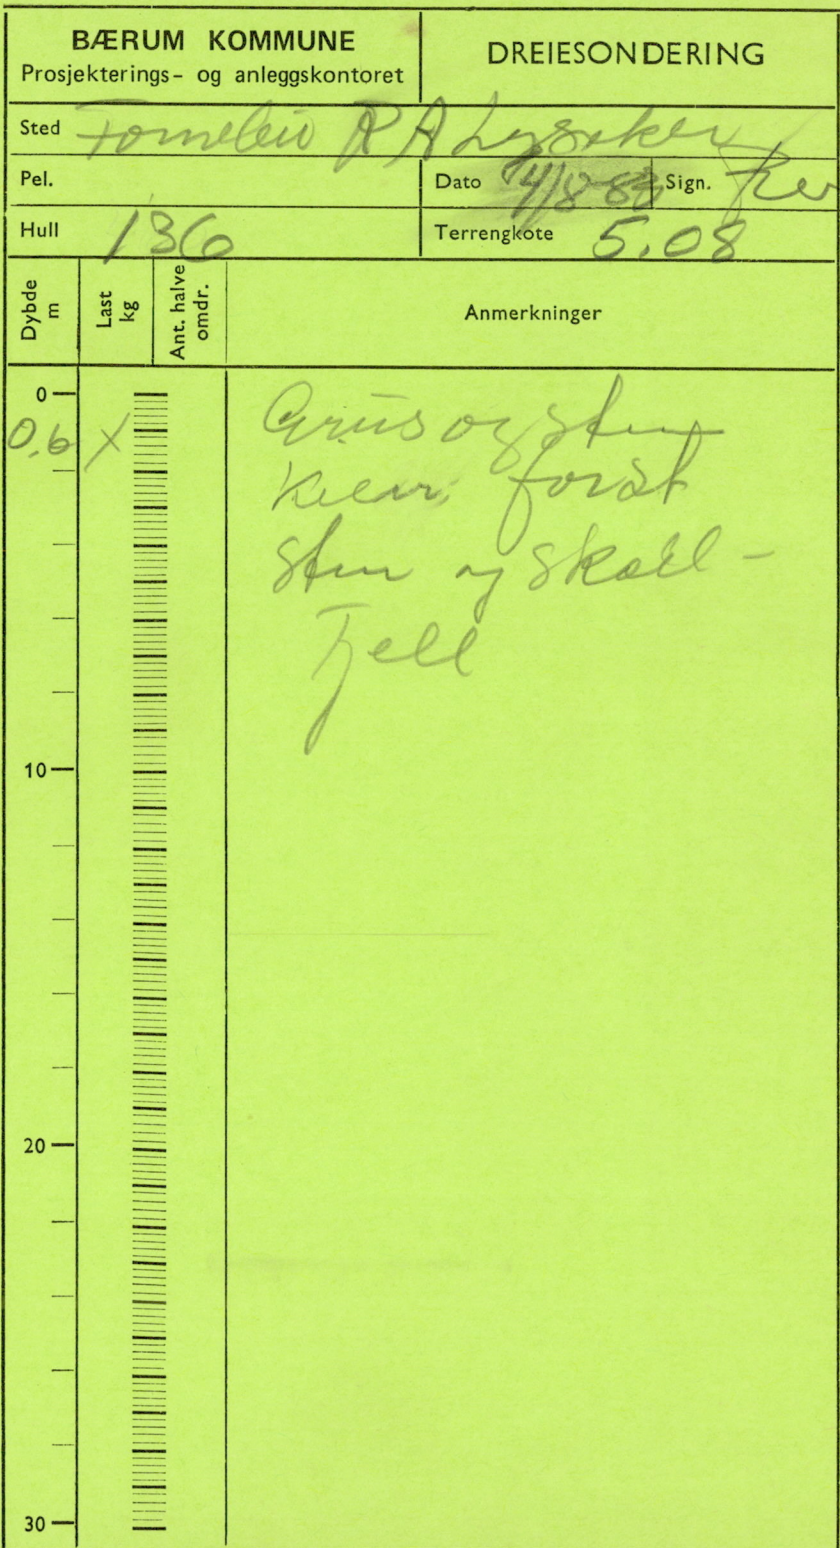 BÆRUM KOMMUNE
Prosjekterings- og anleggskontoret
DREIESONDERING
Sted Lysaker
Pel.
Dato 4/8-83 Sign.
Hull 136
Terrengkote 5.08
Dybde m
Last kg
Ant. halve omdr.
Anmerkninger
0
0,6 X
Grus og sten
først
sten og skall-
Fjell
10
20
30